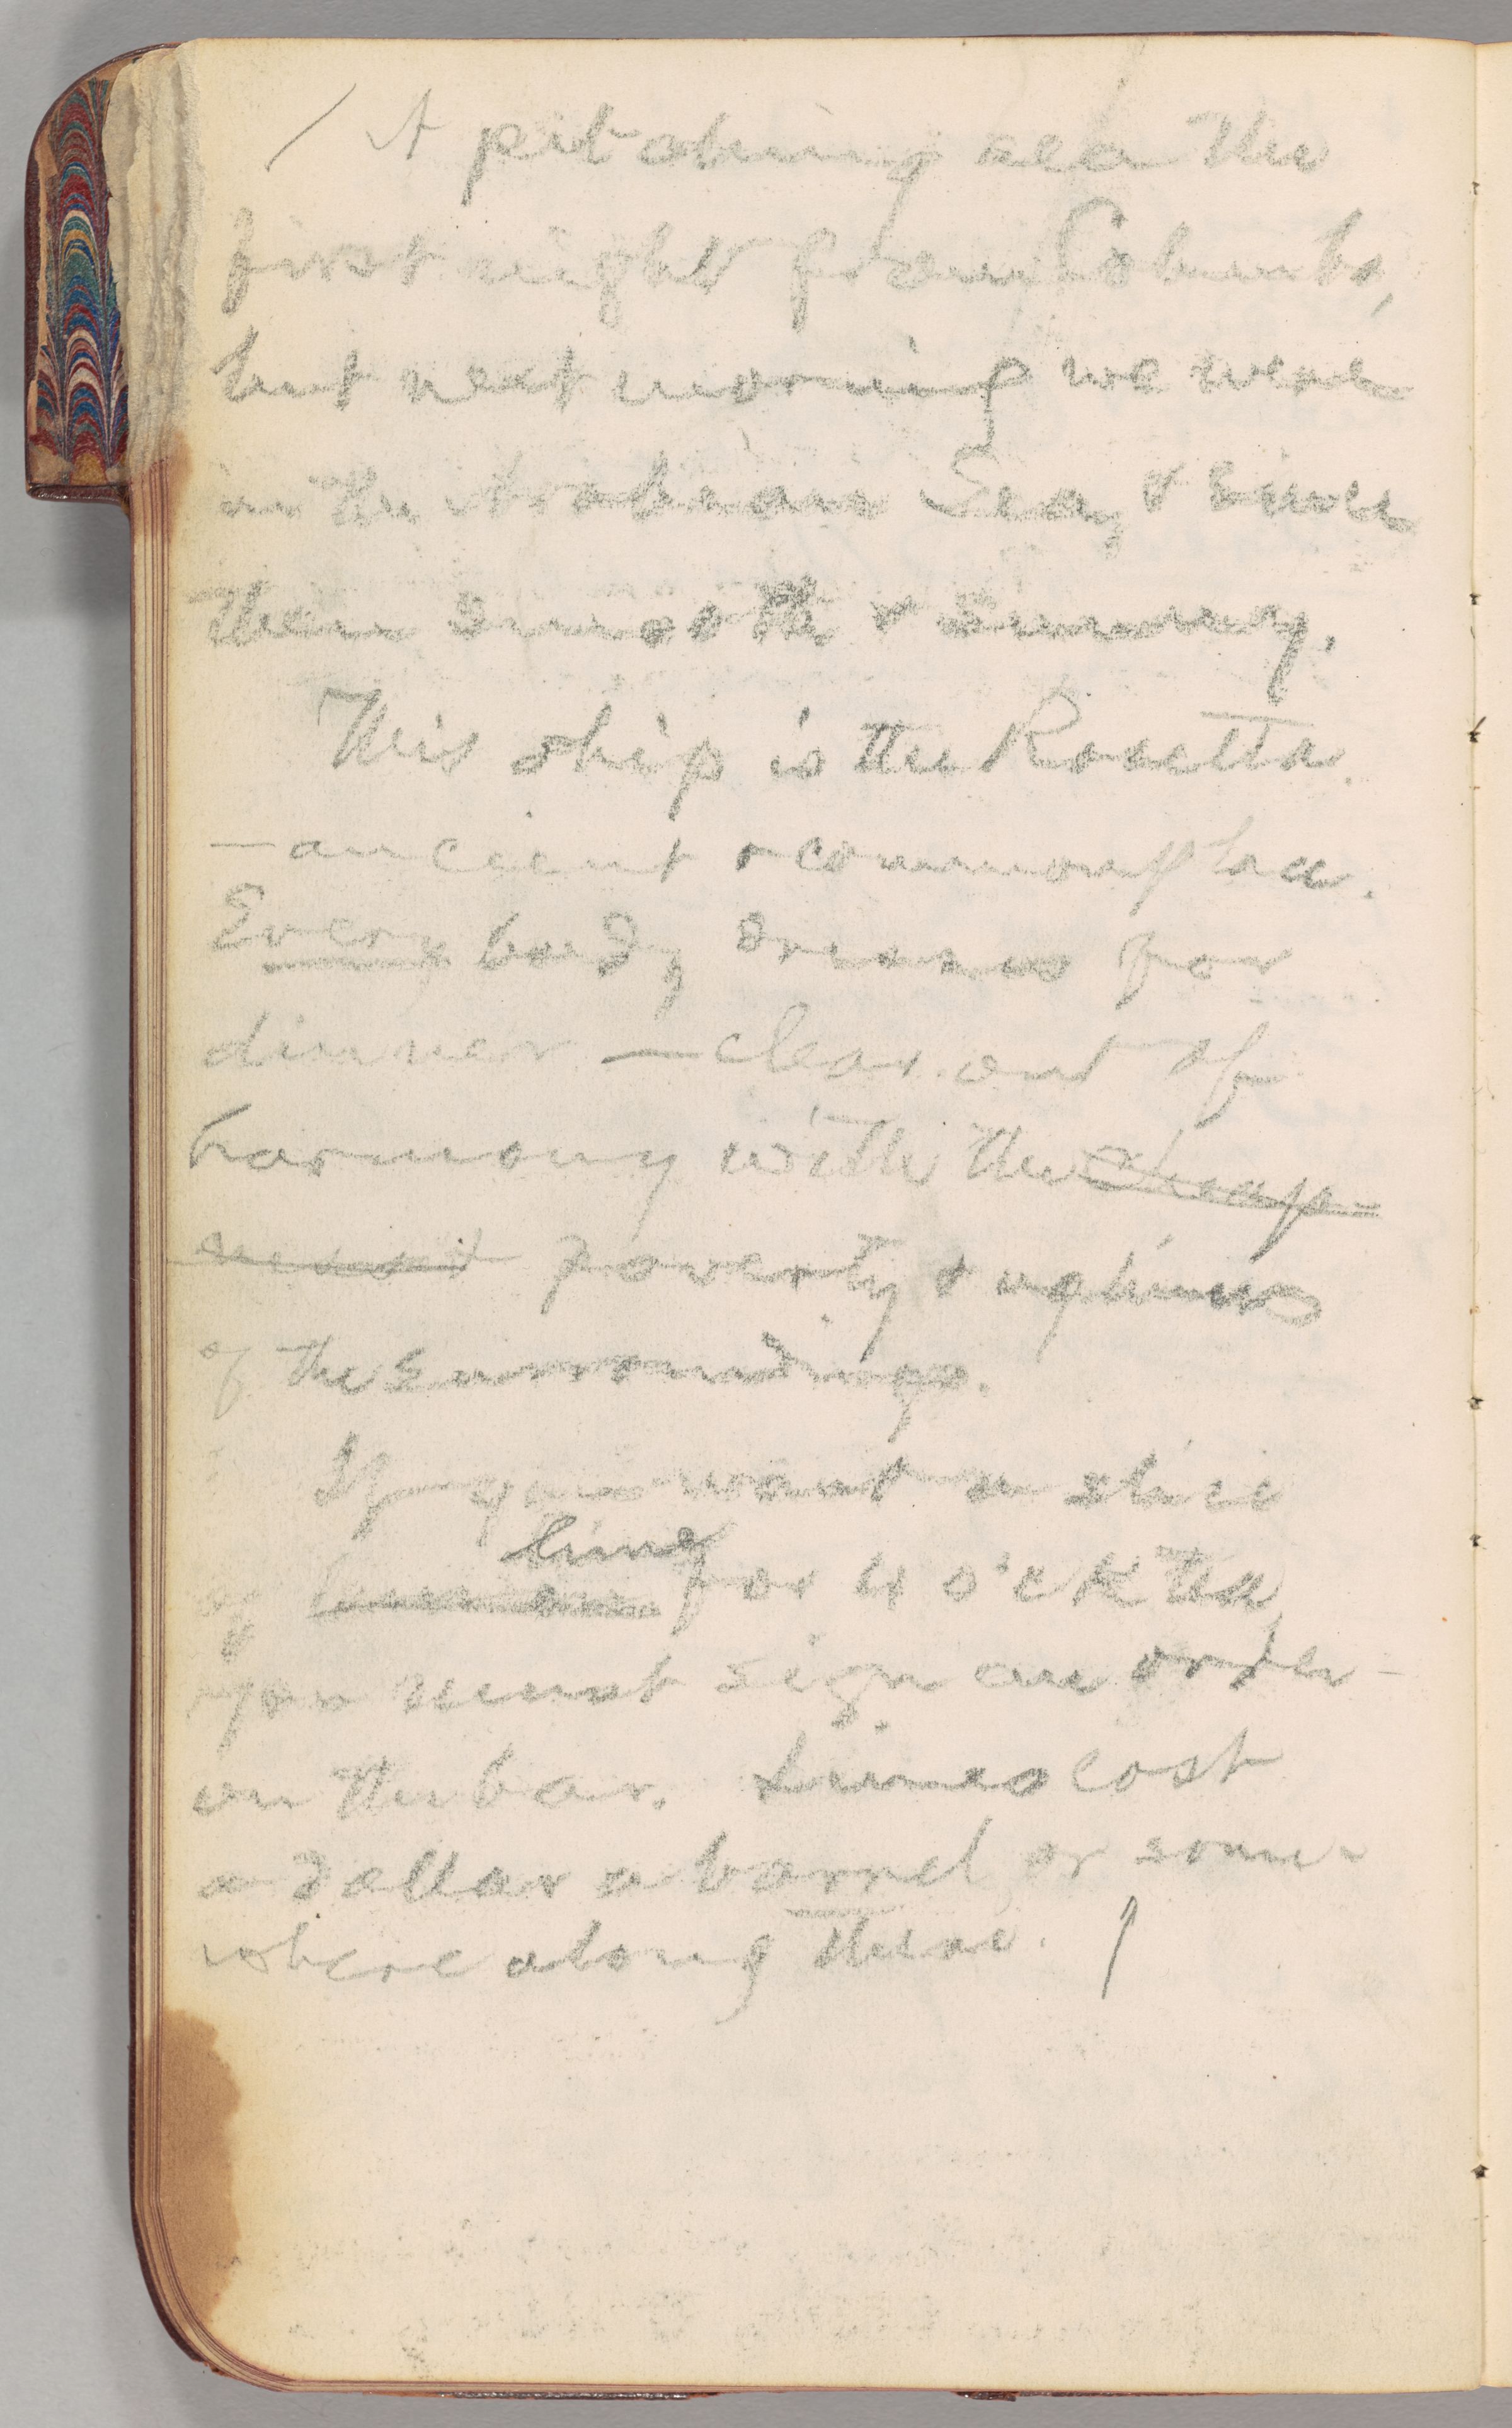 / A pitching sea the
first night from Colombo,
but next morning we were
in the Arabian Sea, & since
then smooth & summery.
This ship is the Rosetta
— ancient & commonplace.
Everybody dresses for
dinner — clear out of
harmony with the cheap-
poverty & ugliness
of the surroundings.
If you want a slice
lime
of for 4 o'clk tea
you must sign an order
on the bar. Limes cost
a dollar a barrel or some-
where along there. /